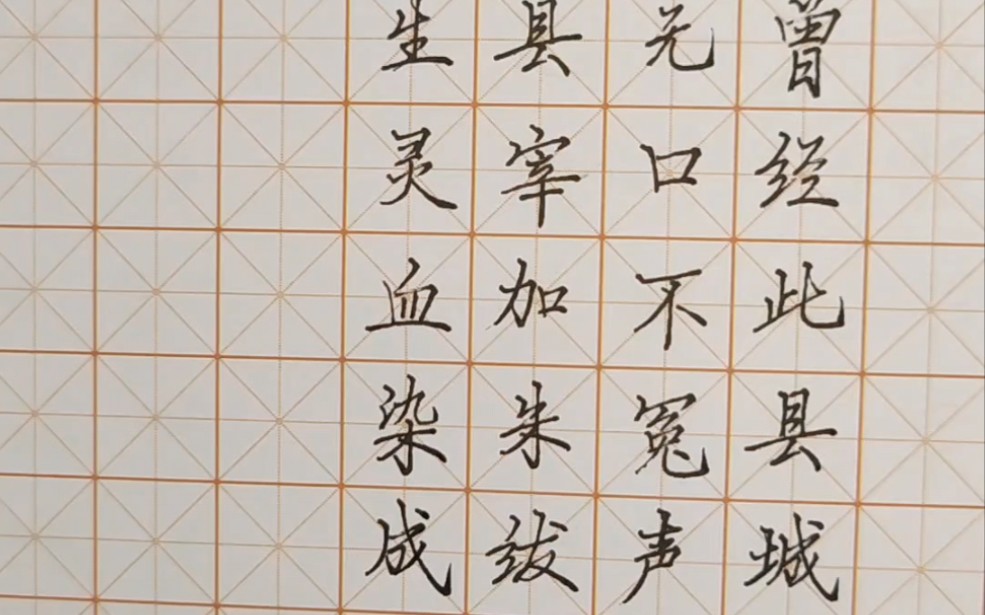 曾经此县城
无口不冤声
县宰加朱绂
生灵血染成